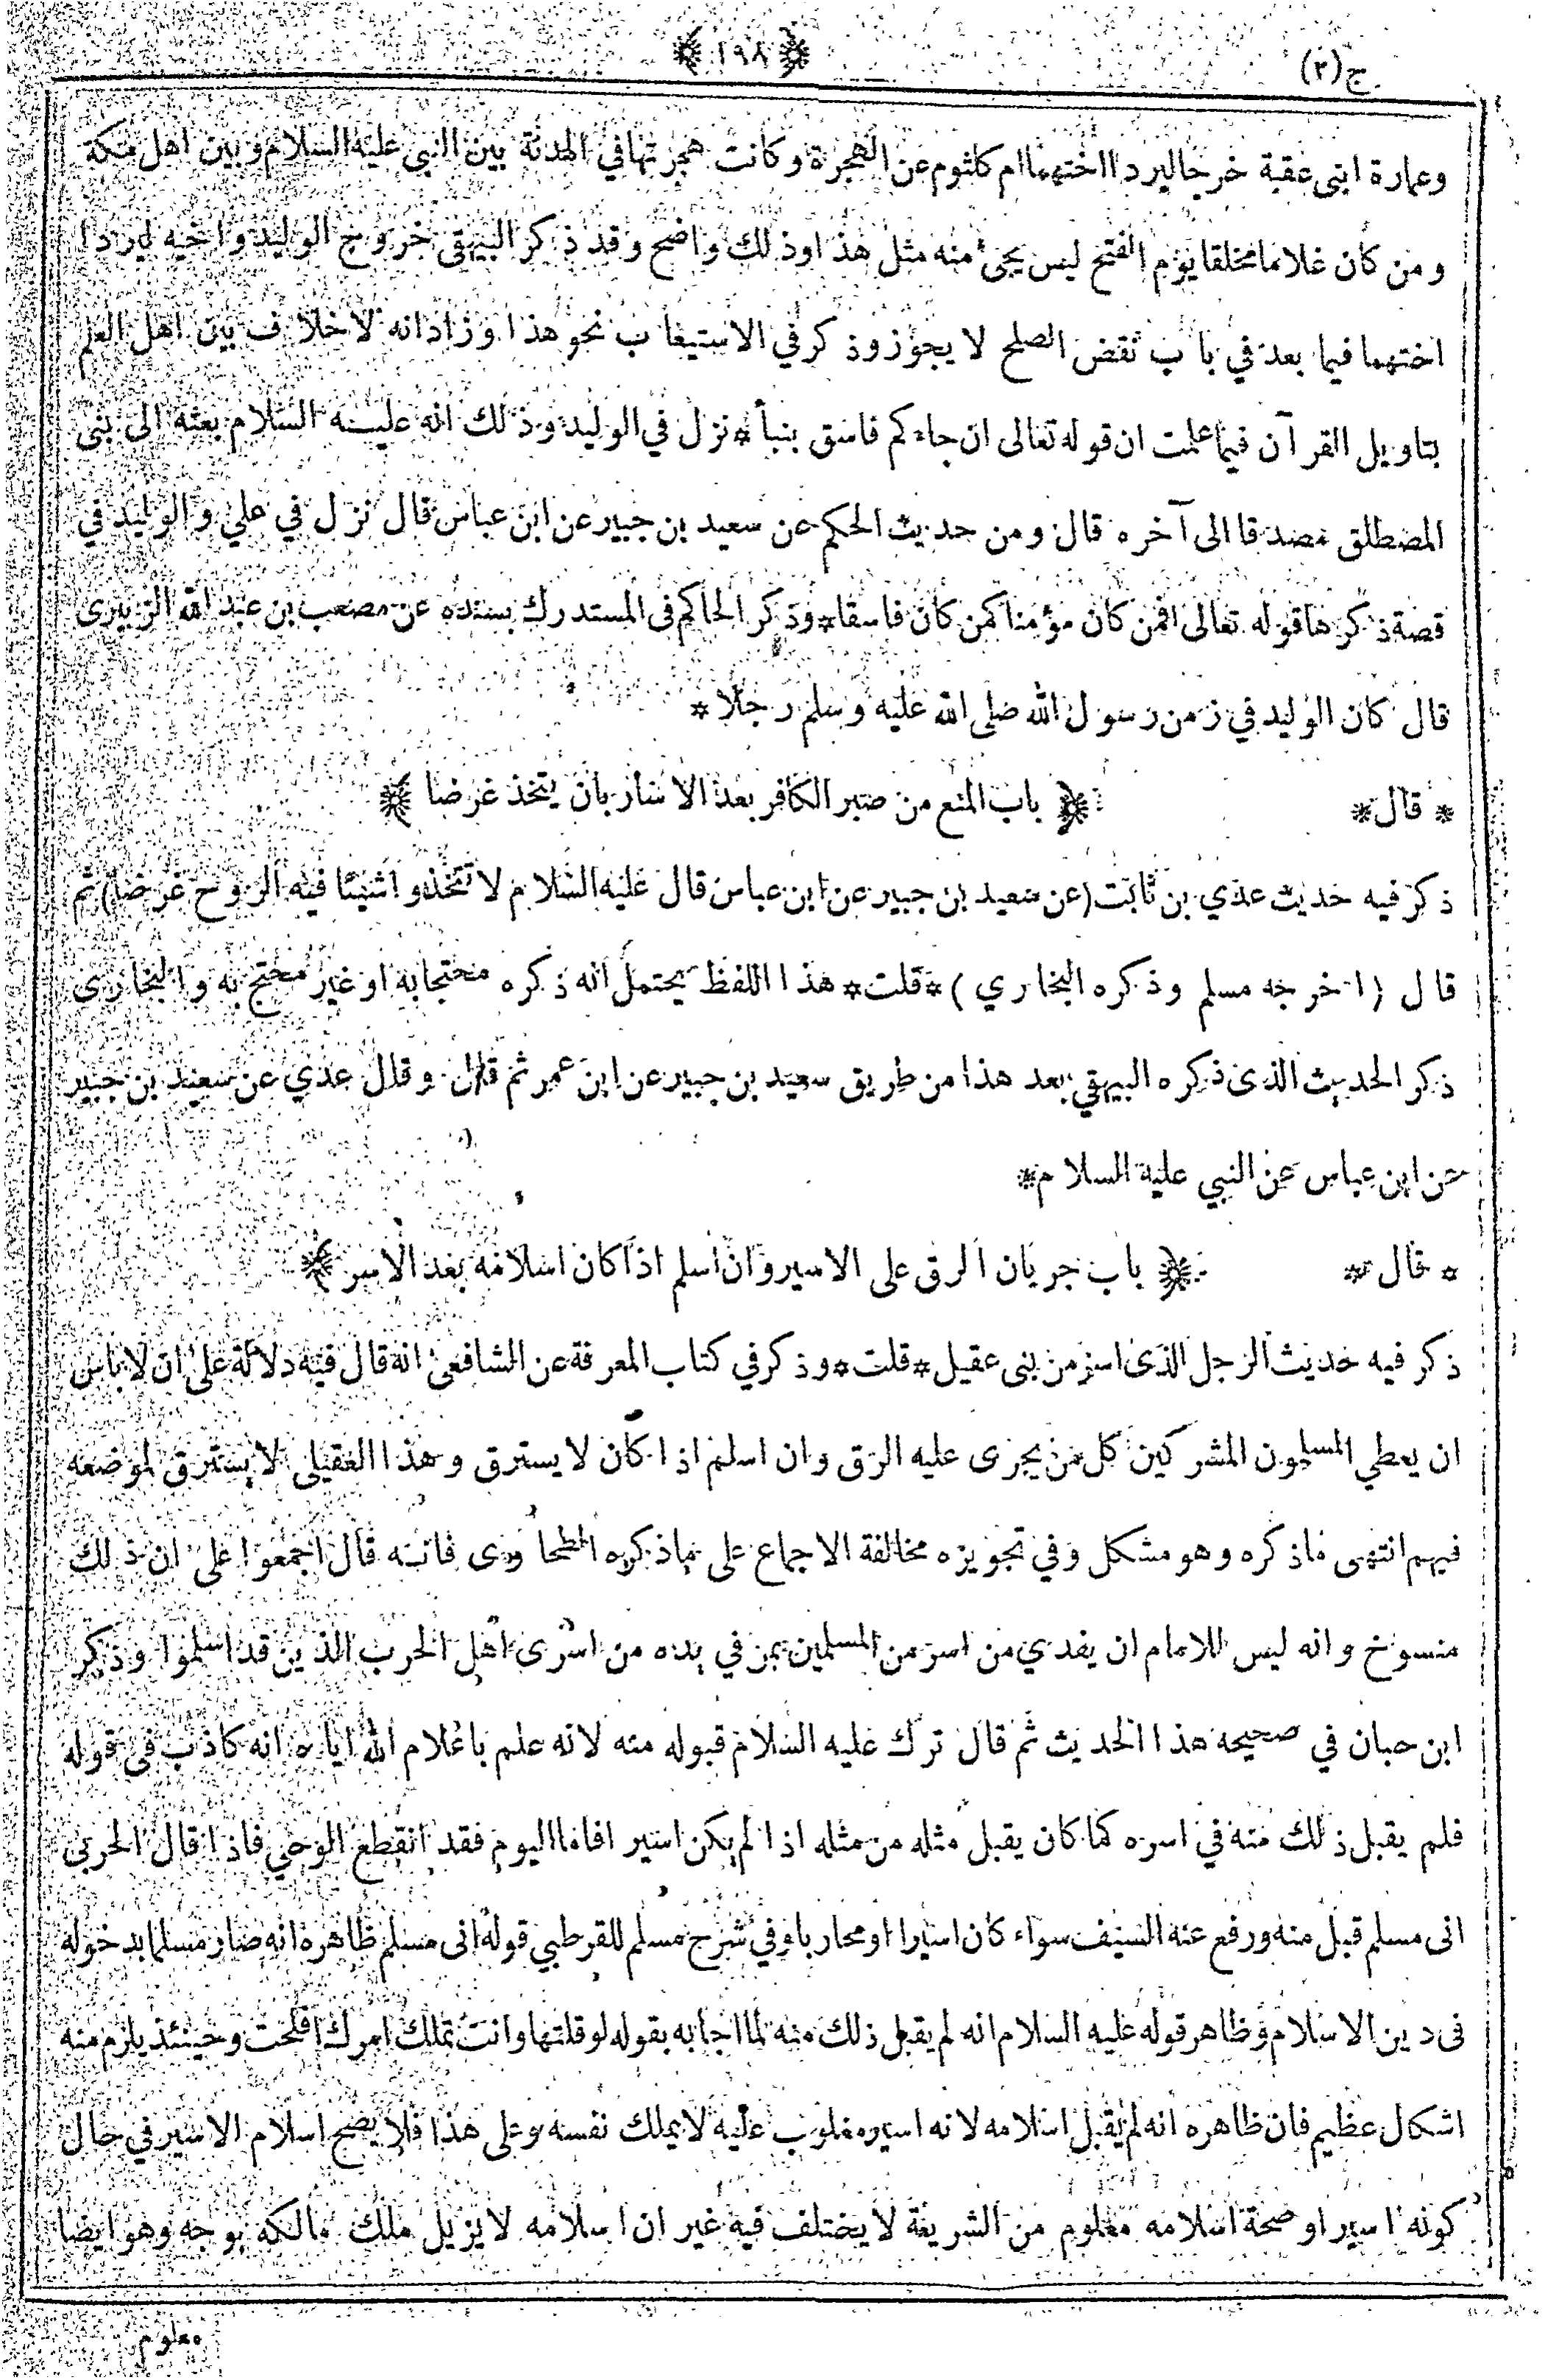 ج(٢)
﴿ ١٩٨ ﴾
وعمارة ابنى عقبة خرجا ليردا اختهما ام كلثوم عن الهجرة وكانت هجرتها في الهدنة بين النبي عليه السلام وبين اهل مكة
ومن كان غلاما مخلقا يوم الفتح ليس يجئ منه مثل هذا وذلك واضح وقد ذكر البيهقى خروج الوليد واخيه ليردا
اختهما فيما بعد في باب نقض الصلح لا يجوز وذكر في الاستيعاب نحو هذا وزاد انه لا خلاف بين اهل العلم
بتاويل القرآن فيما علمت ان قوله تعالى ان جاءكم فاسق بنبأ * نزل في الوليد وذلك انه عليه السلام بعثه الى بنى
المصطلق مصدقا الى آخره قال ومن حديث الحكم عن سعيد بن جبير عن ابن عباس قال نزل في علي والوليد في
قصة ذكرها قوله تعالى افمن كان مؤمنا كمن كان فاسقا * وذكر الحاكم فى المستدرك بسنده عن مصعب بن عبد الله الزبيرى
قال كان الوليد في زمن رسول الله صلى الله عليه وسلم رجلا *
* قال * ﴿ باب المنع من صبر الكافر بعد الاسار بان يتخذ غرضا ﴾
ذكر فيه حديث عدي بن ثابت (عن سعيد بن جبير عن ابن عباس قال عليه السلام لا تتخذوا شيئا فيه الروح غرضا) ثم
قال (اخرجه مسلم وذكره البخاري) * قلت * هذا اللفظ يحتمل انه ذكره محتجا به او غير محتج به والبخارى
ذكر الحديث الذى ذكره البيهقي بعد هذا من طريق سعيد بن جبير عن ابن عمر ثم قال وقال عدي عن سعيد بن جبير
عن ابن عباس عن النبي عليه السلام *
* قال * ﴿ باب جريان الرق على الاسير وان اسلم اذا كان اسلامه بعد الاسر ﴾
ذكر فيه حديث الرجل الذى اسر من بنى عقيل * قلت * وذكر في كتاب المعرفة عن الشافعى انه قال فيه دلالة على ان لا باس
ان يعطي المسلمون المشركين كل من يجرى عليه الرق وان اسلم اذا كان لا يسترق وهذا العقيلى لا يسترق لموضعه
فيهم انتهى ما ذكره وهو مشكل وفي تجويزه مخالفة الاجماع على ما ذكره الطحاوى فانه قال اجمعوا على ان ذلك
منسوخ وانه ليس للامام ان يفدي من اسر من المسلمين بمن في يده من اسرى اهل الحرب الذين قد اسلموا وذكر
ابن حبان في صحيحه هذا الحديث ثم قال ترك عليه السلام قبوله منه لانه علم باعلام الله اياه انه كاذب فى قوله
فلم يقبل ذلك منه في اسره كما كان يقبل مثله من مثله اذا لم يكن اسير افاما اليوم فقد انقطع الوحي فاذا قال الحربى
انى مسلم قبل منه ورفع عنه السيف سواء كان اسيرا او محاربا وفي شرح مسلم للقرطبي قوله انى مسلم ظاهره انه صار مسلما بدخوله
فى دين الاسلام وظاهر قوله عليه السلام انه لم يقبل ذلك منه لما اجابه بقوله لو قلتها وانت تملك امرك افلحت وحينئذ يلزم منه
اشكال عظيم فان ظاهره انه لم يقبل اسلامه لانه اسير مغلوب عليه لا يملك نفسه وعلى هذا فلا يصح اسلام الاسير في حال
كونه اسيرا وصحة اسلامه معلوم من الشريعة لا يختلف فيه غير ان اسلامه لا يزيل ملك مالكه بوجه وهو ايضا
معلوم